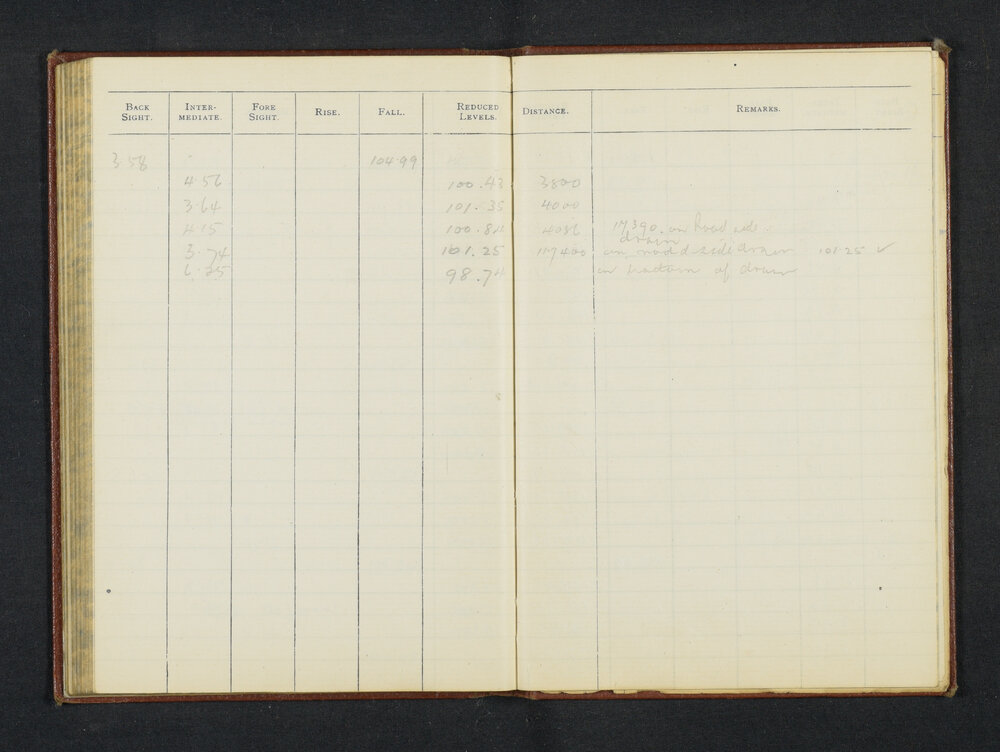 BACK SIGHT. INTER- MEDIATE. FORE SIGHT. RISE. FALL. REDUCED LEVELS. DISTANCE. REMARKS.
3.58 104.99
4.56 100.43 3800
3.64 101.35 4000
4.15 100.84 4086 117390 on Road side
drain
3.74 101.25 117400 on road side drain 101.25 ✓
6.25 98.74 on bottom of drain